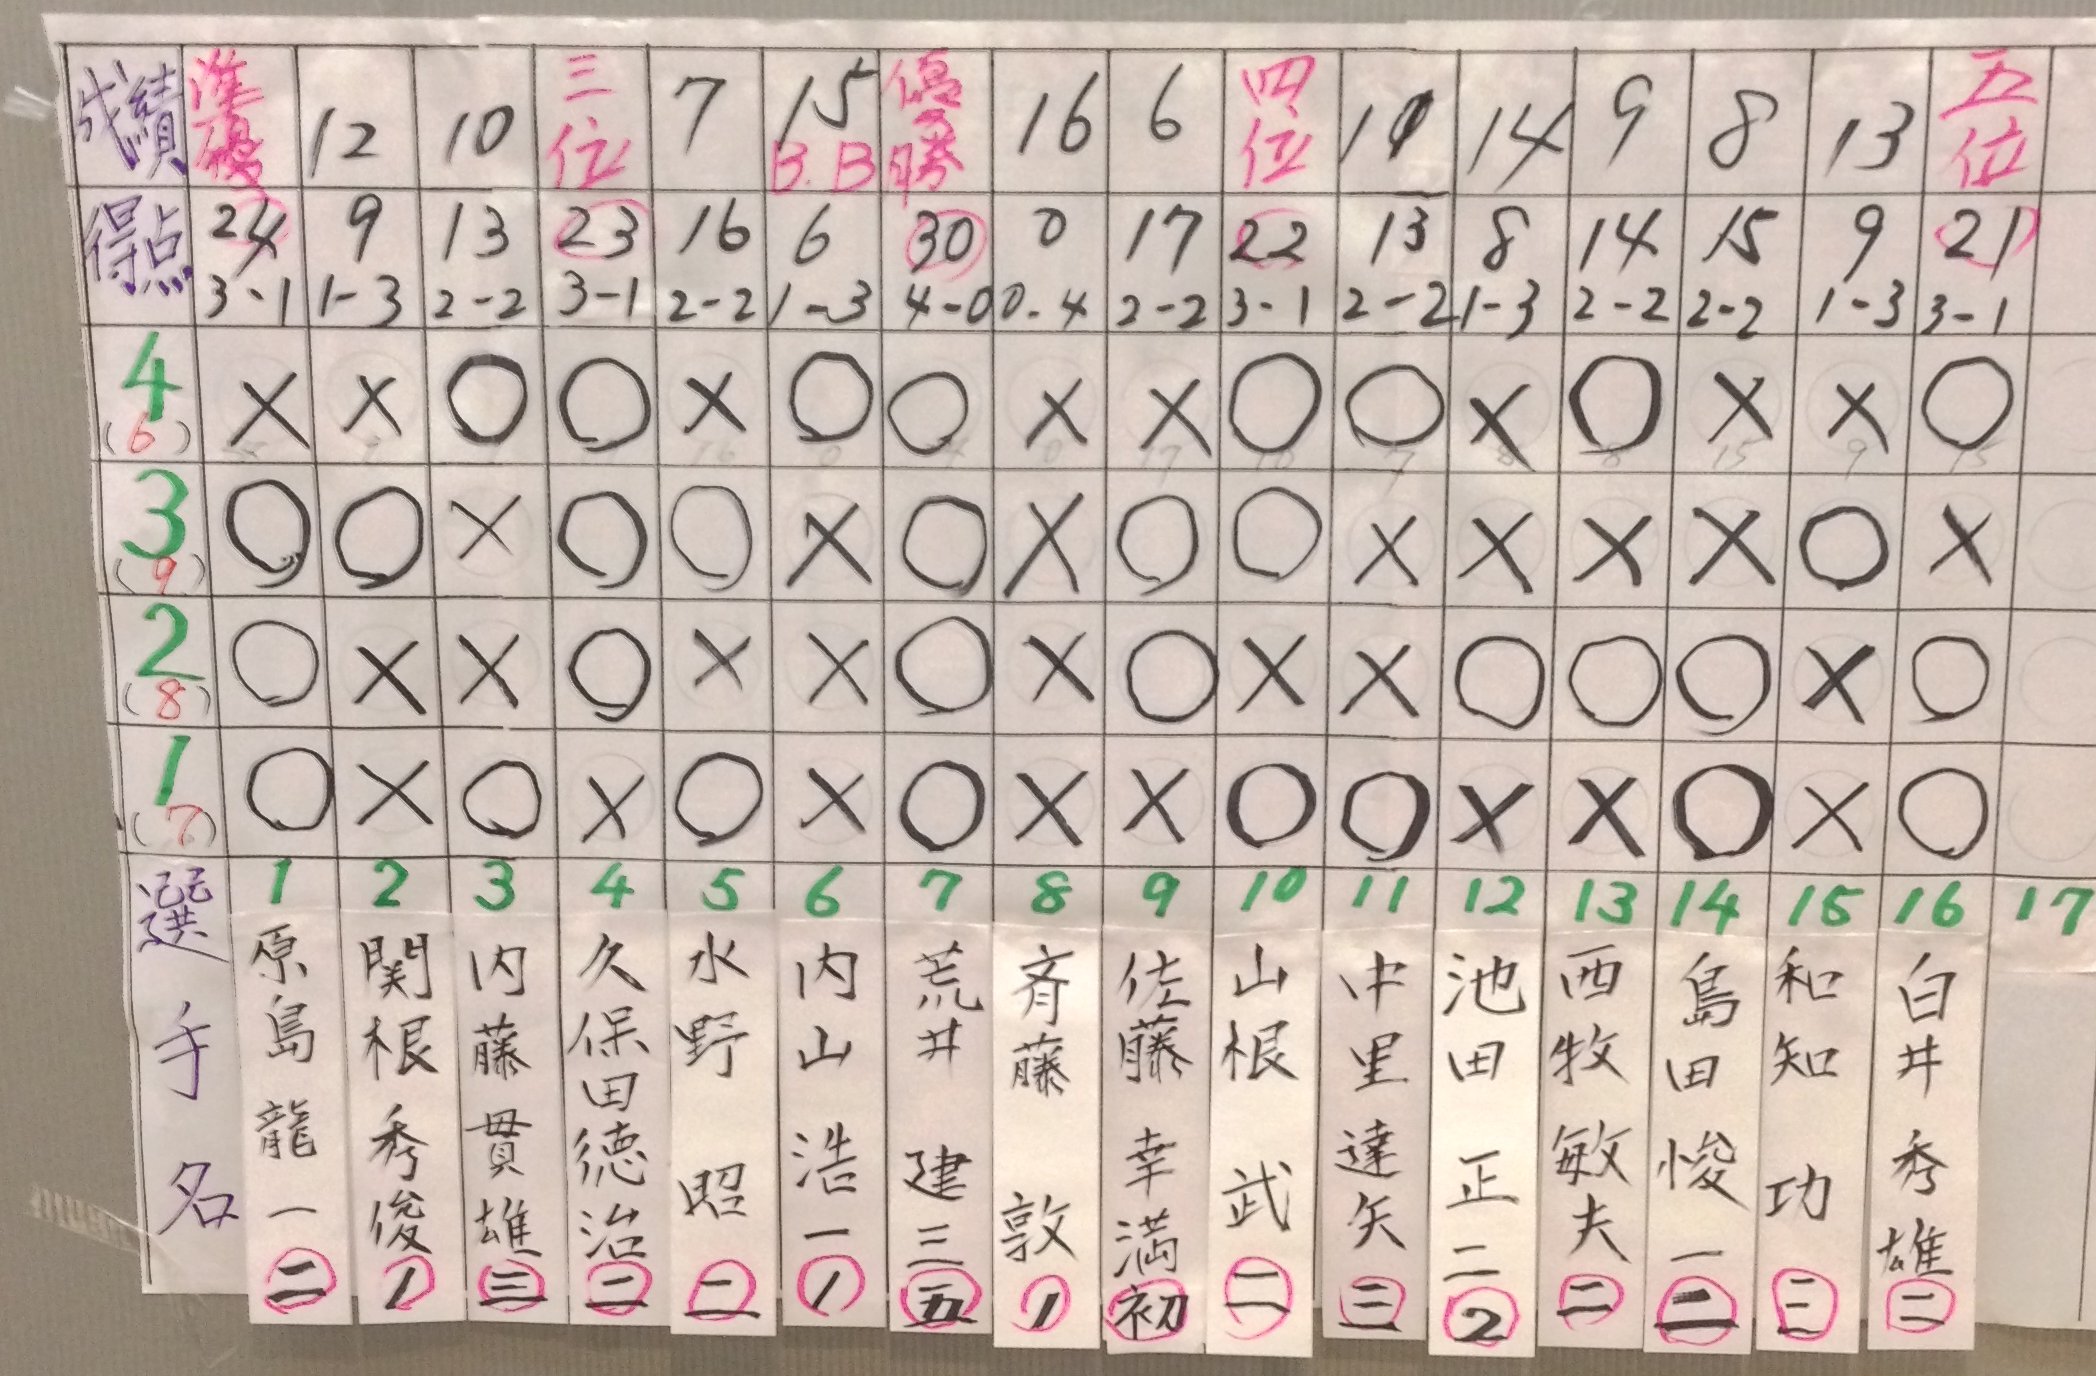 成績 準優 12 10 三位 7 15 B.B 優勝 16 6 四位 11 14 9 8 13 五位
得点 24 9 13 23 16 6 30 0 17 22 13 8 14 15 9 21
3-1 1-3 2-2 3-1 2-2 1-3 4-0 0-4 2-2 3-1 2-2 1-3 2-2 2-2 1-3 3-1
4 (6) × × ○ ○ × ○ ○ × × ○ ○ × ○ × × ○
3 (9) ○ ○ × ○ ○ × ○ × ○ ○ × × × × ○ ×
2 (8) ○ × × ○ × × ○ × ○ × × ○ ○ ○ × ○
1 (7) ○ × ○ × ○ × ○ × × ○ ○ × × ○ × ○
選手名 1 2 3 4 5 6 7 8 9 10 11 12 13 14 15 16 17
原島龍一 二
関根秀俊 1
内藤貫雄 三
久保田徳治 二
水野昭 二
内山浩一 1
荒井建三 五
斉藤敦 1
佐藤幸満 初
山根武 二
中里達矢 三
池田正二 2
西牧敏夫 二
島田悛一 二
和知功 三
白井秀雄 二